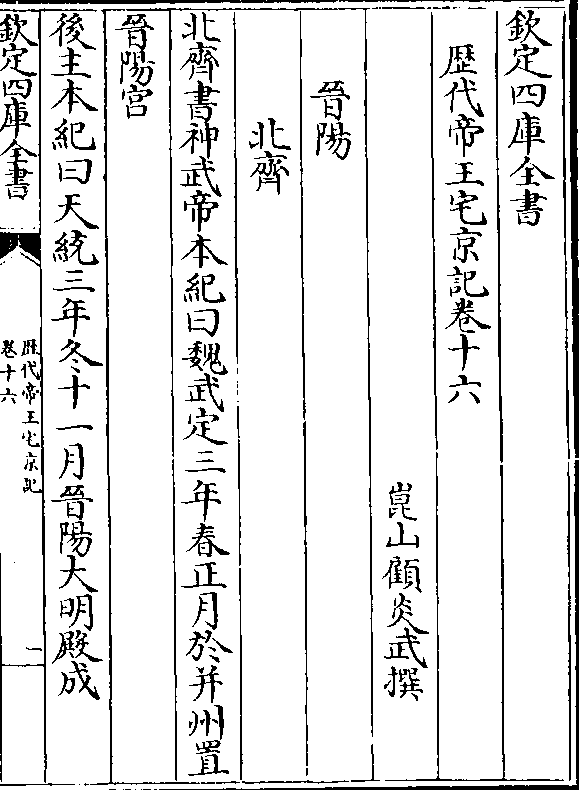 欽定四庫全書
歴代帝王宅京記卷十六
崑山顧炎武撰
晉陽
北齊
北齊書神武帝本紀曰魏武定三年春正月於并州置
晉陽宫
後主本紀曰天統三年冬十一月晉陽大明殿成
欽定四庫全書
歴代帝王宅京記
卷十六
一